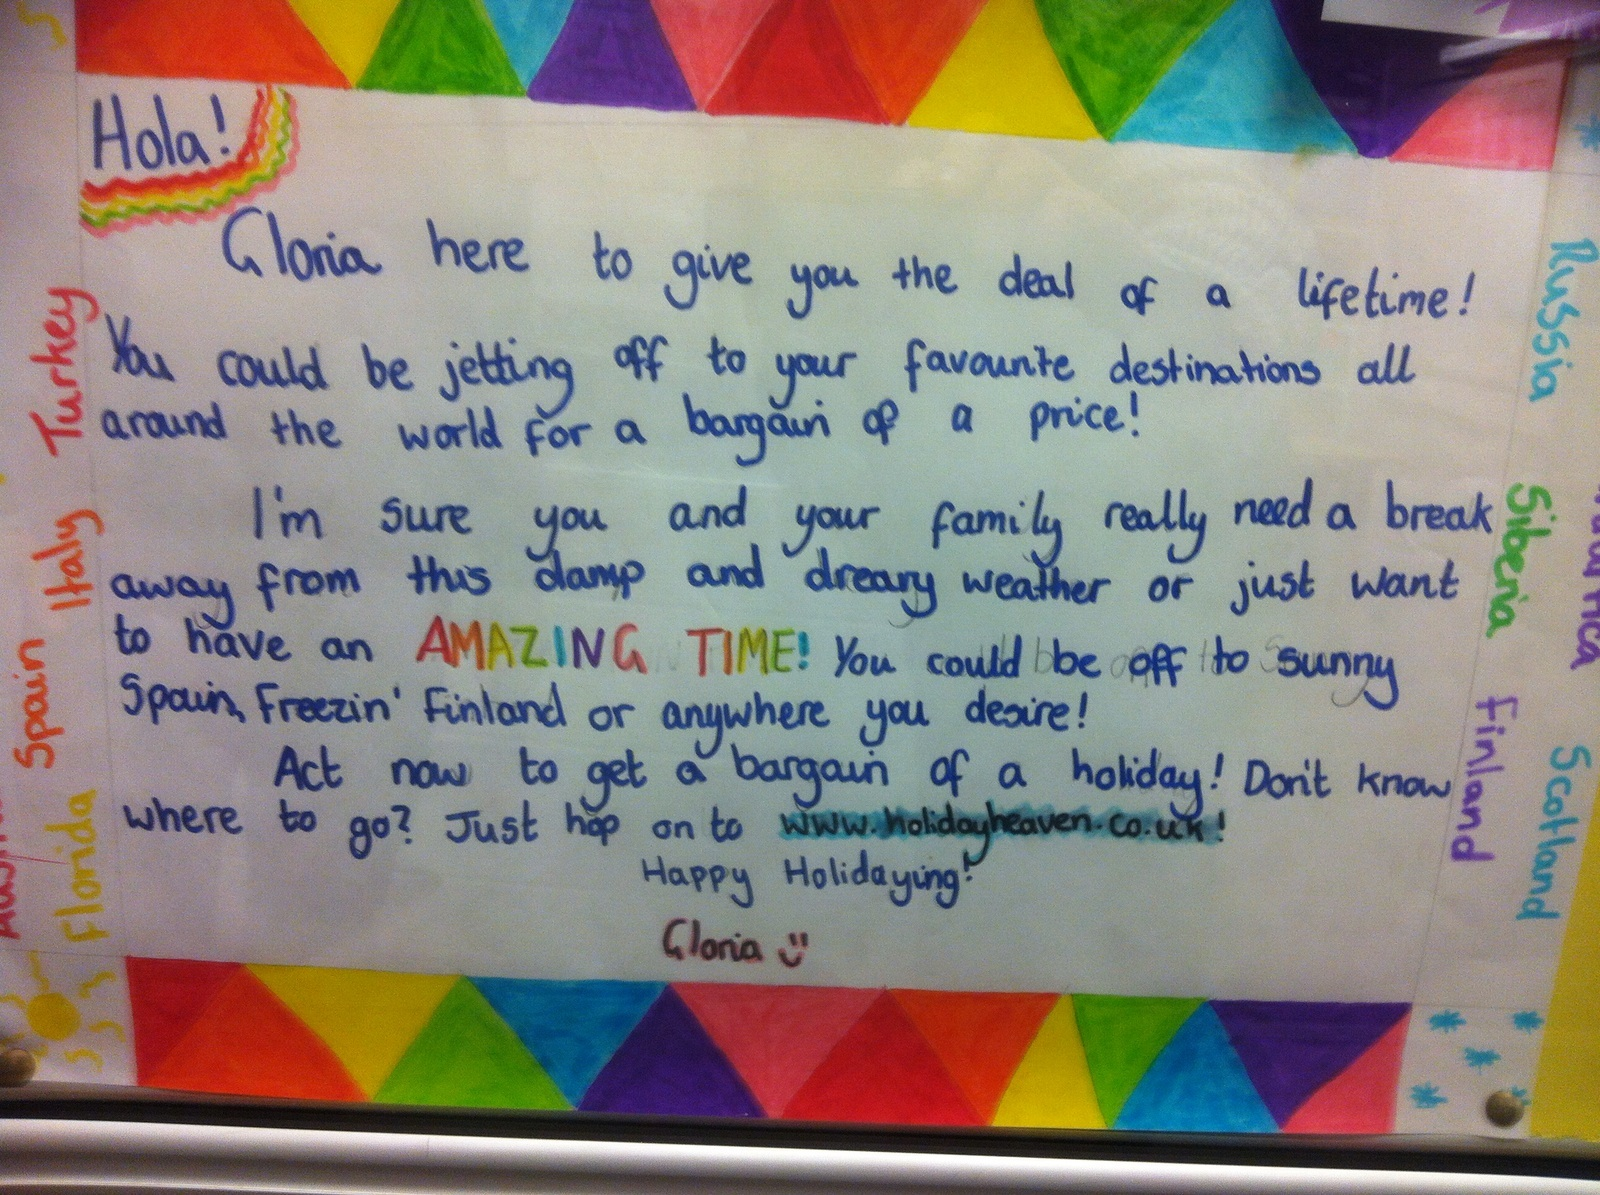 Hola!
Gloria here to give you the deal of a lifetime!
You could be jetting off to your favourite destinations all
around the world for a bargain of a price!
I'm sure you and your family really need a break
away from this damp and dreary weather or just want
to have an AMAZING TIME! You could be off to sunny
Spain, Freezin' Finland or anywhere you desire!
Act now to get a bargain of a holiday! Don't know
where to go? Just hop on to www.holidayheaven.co.uk!
Happy Holidaying!
Gloria
Turkey
Italy
Spain
Florida
Russia
Siberia
Finland
Scotland